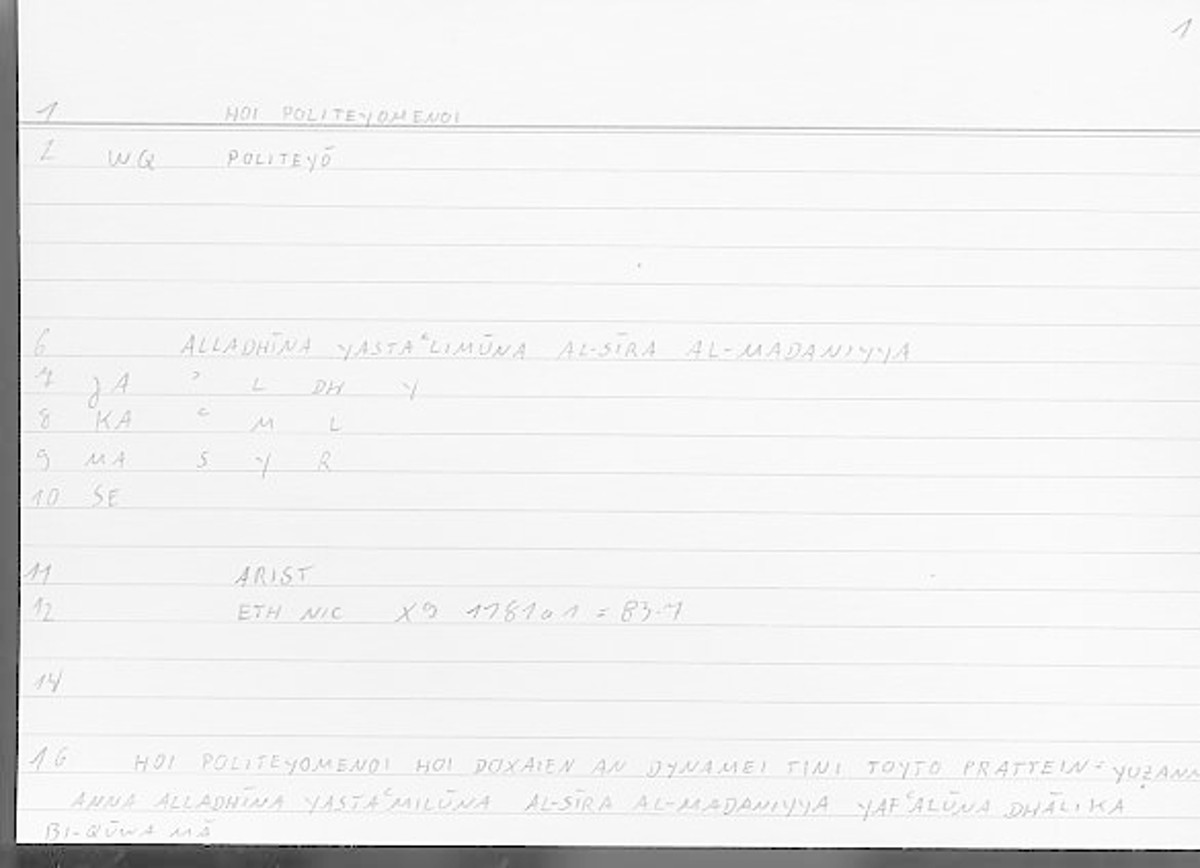 1
1 HOI POLITEYOMENOI
2 WQ POLITEYŌ
6 ALLADHĪNA YASTAʿLIMŪNA AL-SĪRA AL-MADANIYYA
7 JA ʾ L DH Y
8 KA ʿ M L
9 MA S Y R
10 SE
11 ARIST
12 ETH NIC X9 1181a1 = 83-7
14
16 HOI POLITEYOMENOI HOI DOXAIEN AN DYNAMEI TINI TOYTO PRATTEIN = YUẒANN
ANNA ALLADHĪNA YASTAʿMILŪNA AL-SĪRA AL-MADANIYYA YAFʿALŪNA DHĀLIKA
BI-QŪWA MĀ